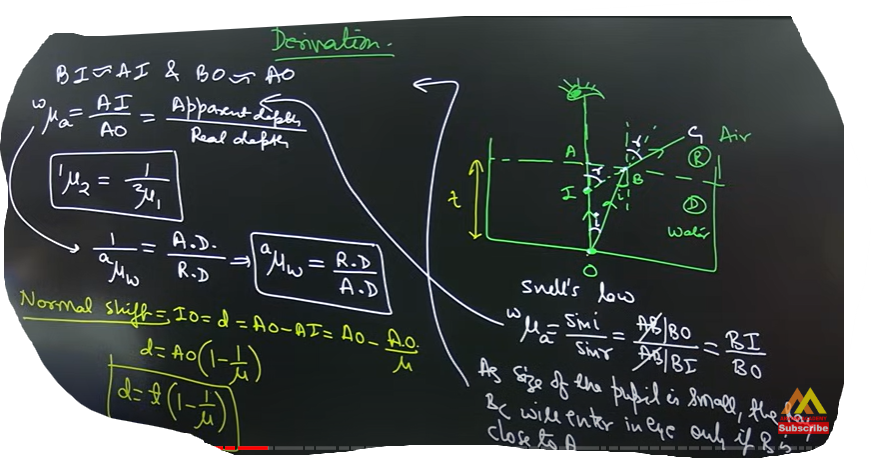 Derivation.
BI ≈ AI & BO ≈ AO
ʷμₐ = AI/AO = Apparent depth/Real depth
¹μ₂ = 1/²μ₁
1/ᵃμw = A.D./R.D ⇒ ᵃμw = R.D/A.D
Normal shift = IO = d = AO - AI = AO - AO/μ
d = AO(1 - 1/μ)
d = t(1 - 1/μ)
A
I
B
O
C
Air
R
D
Water
t
i
r
i
r
Snell's law
ʷμₐ = Sin i/Sin r = AB/BO / AB/BI = BI/BO
As size of the pupil is small, the ray
BC will enter in eye only if B is
close to A
Subscribe